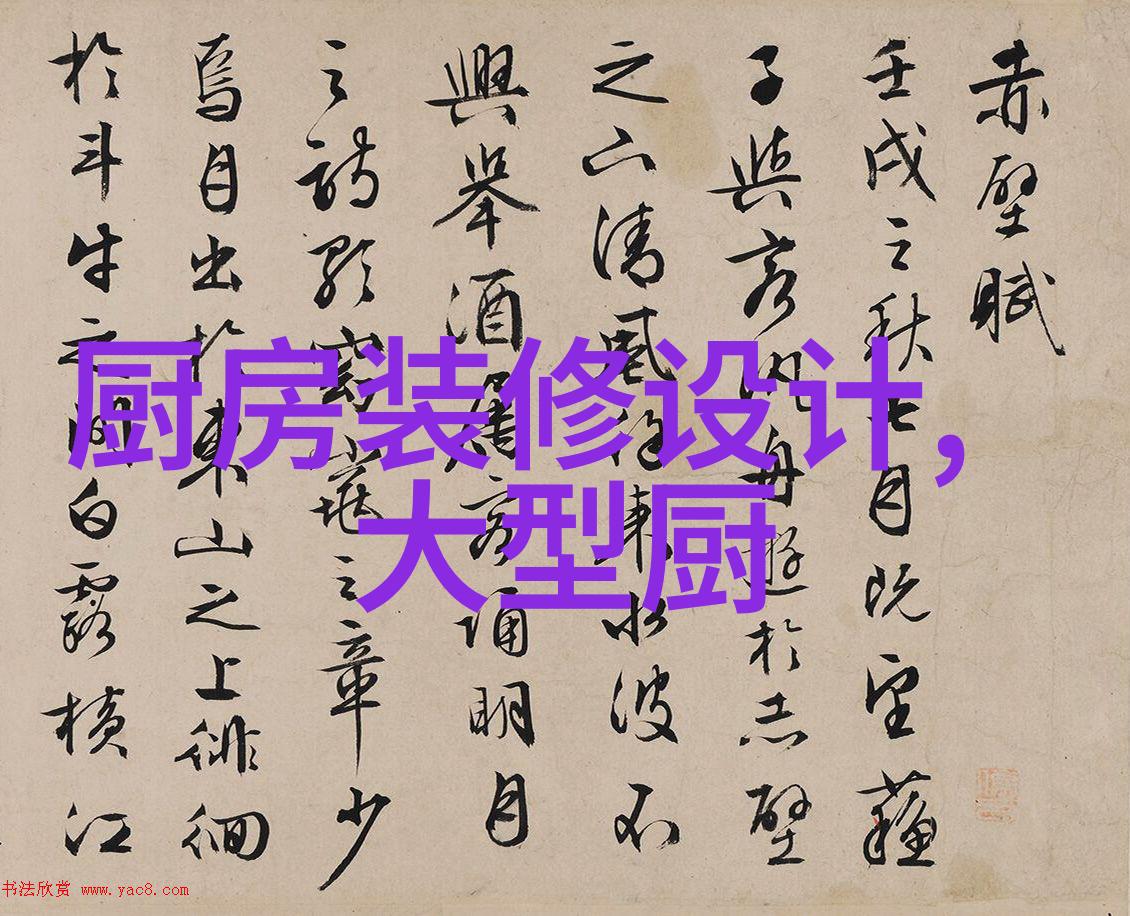 赤壁賦
壬戌之秋七月既望蘇
子與客泛舟遊於赤壁
之下清風徐來水波不
興舉酒屬客誦明月
之詩歌窈窕之章少
焉月出於東山之上徘徊
於斗牛之間白露橫江
厨房装修设计,
大型厨
书法欣赏 www.yac8.com